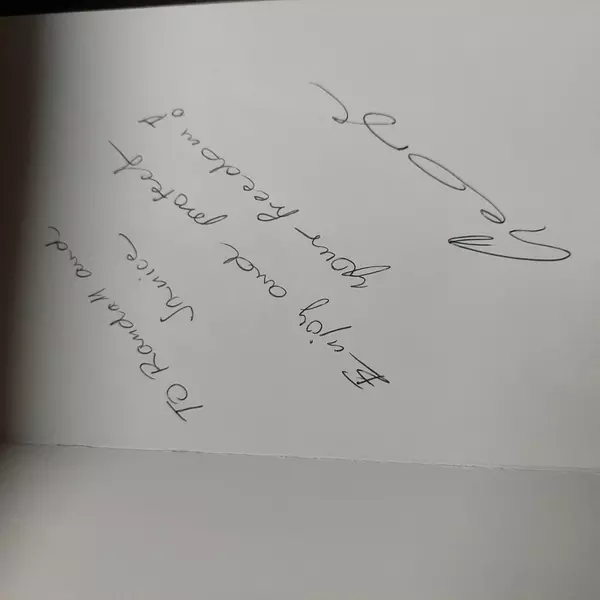 To Randall and
Janice
Enjoy and protect
your freedom!